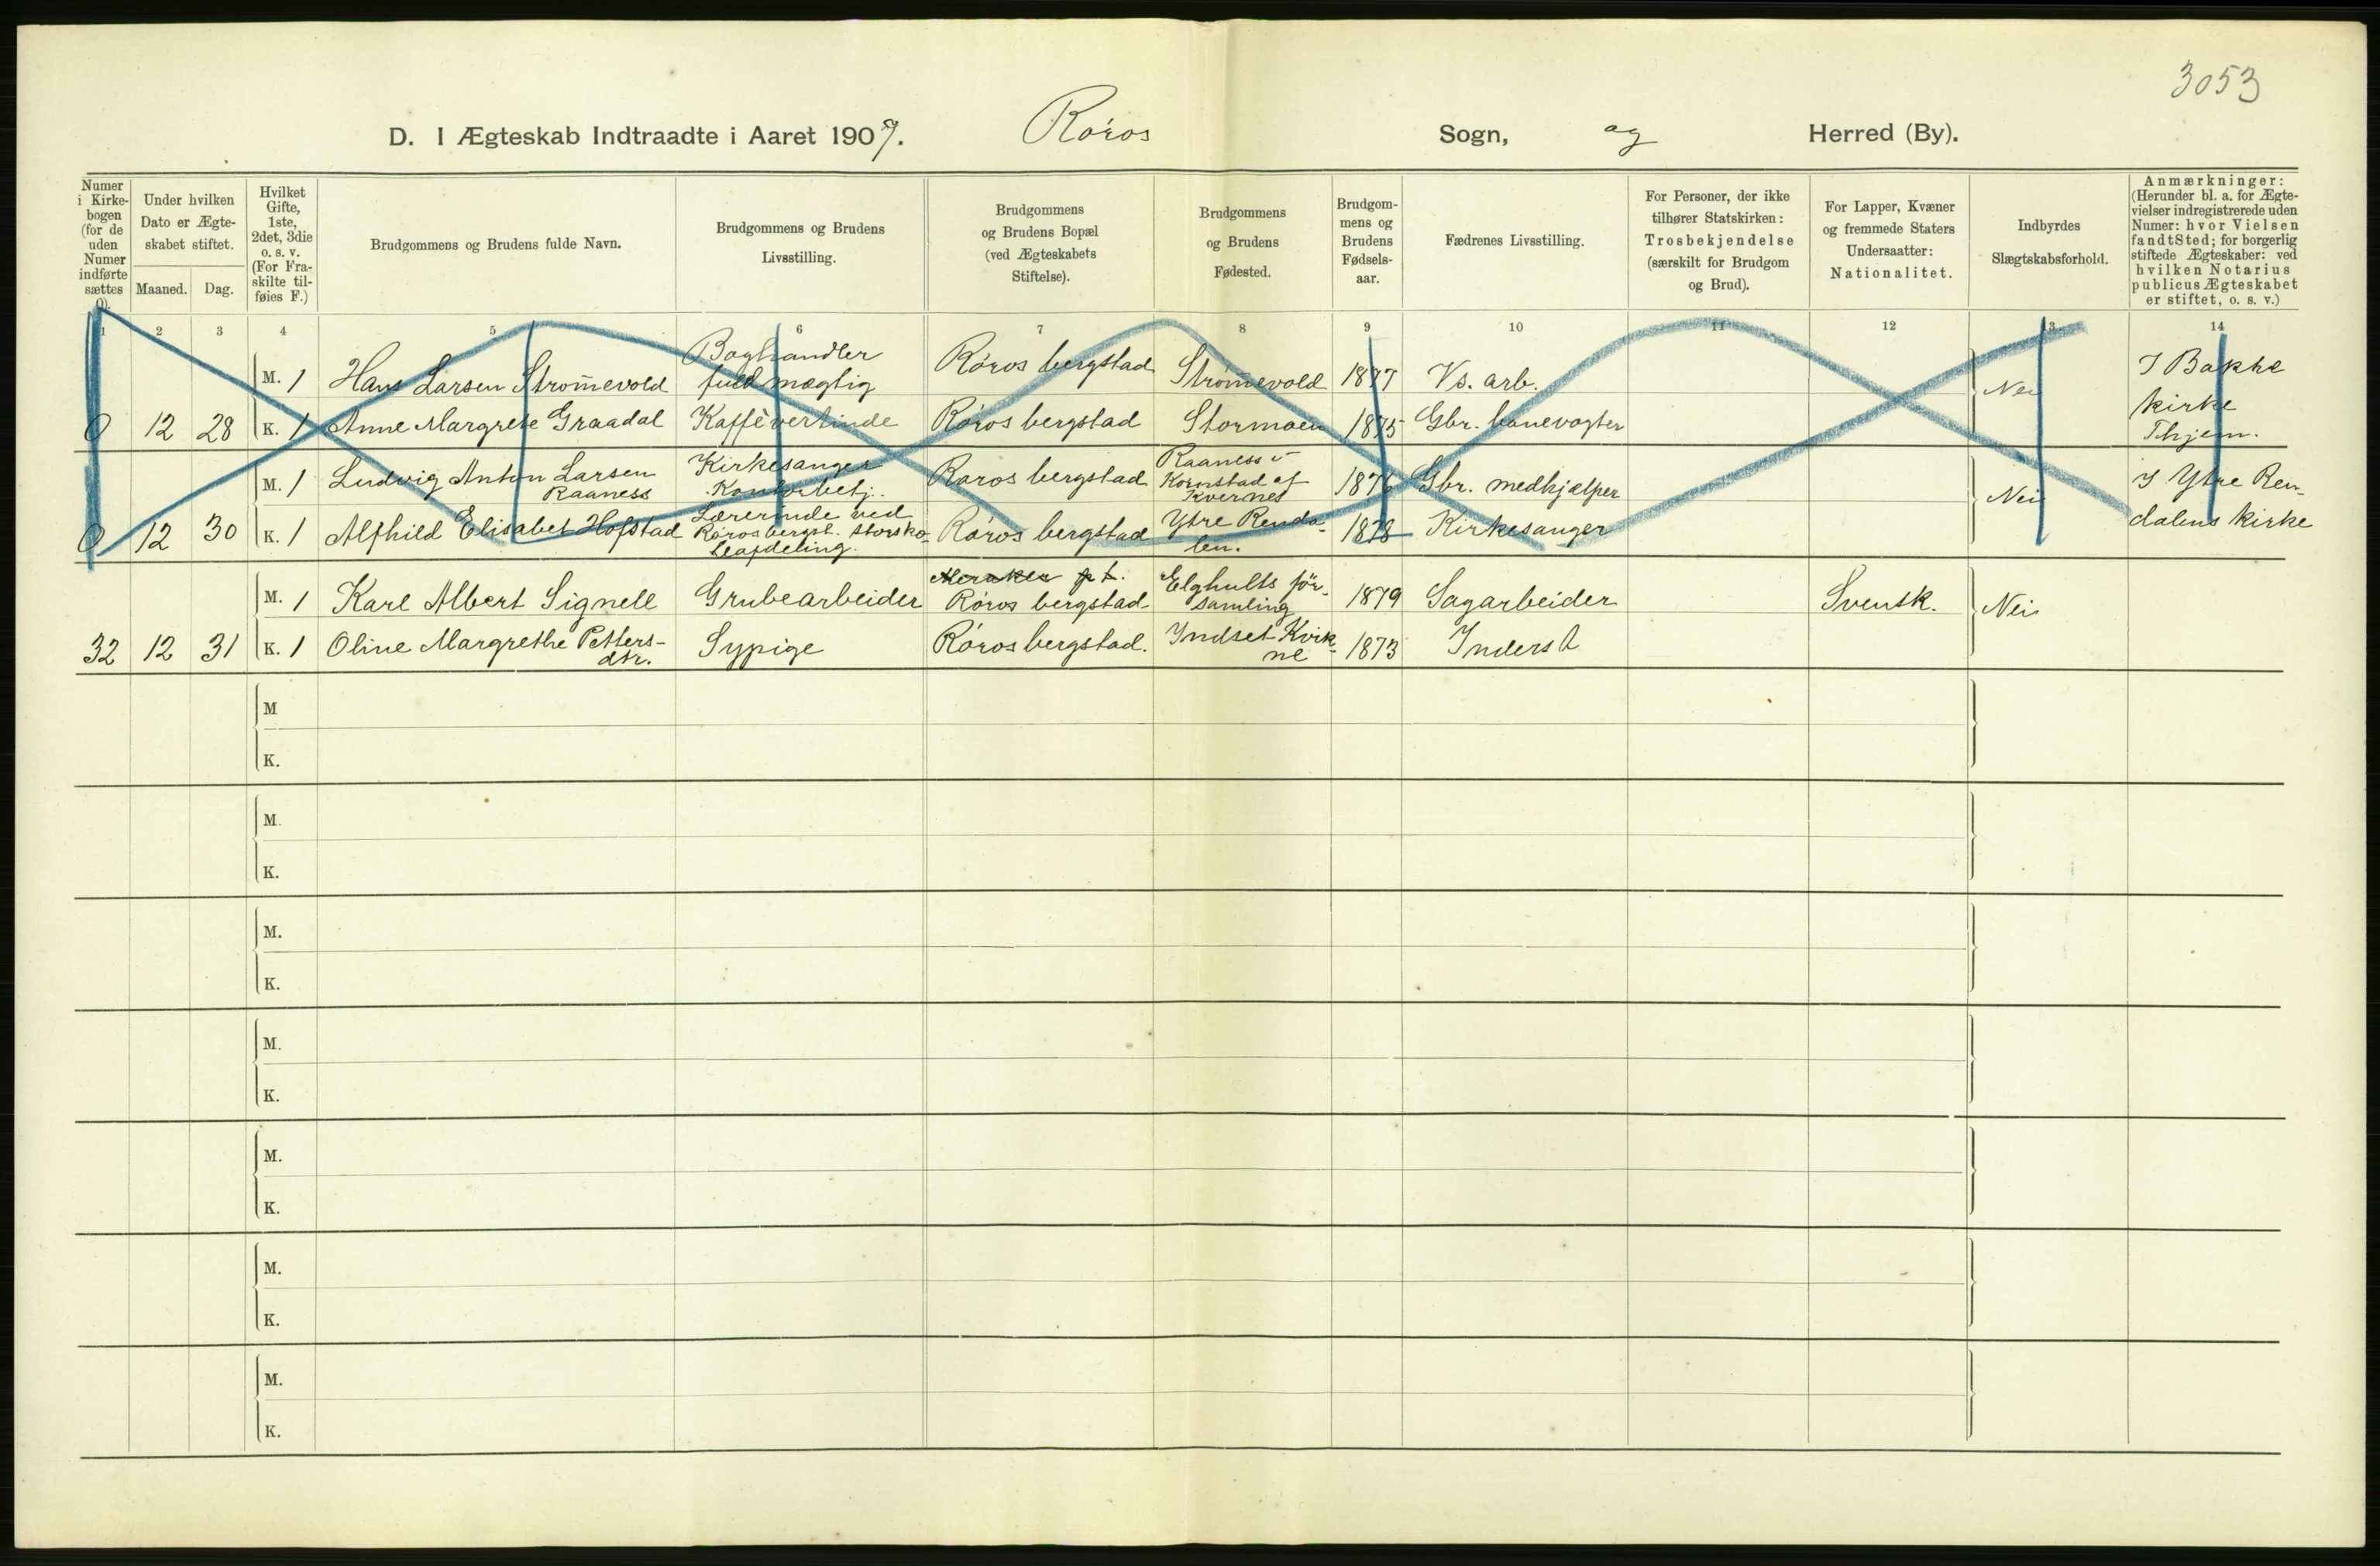 3053
D. I Ægteskab Indtraadte i Aaret 1907. Røros Sogn, og Herred (By).
Numer i Kirkebogen (for de uden Numer indførte sættes 0).
Under hvilken Dato er Ægteskabet stiftet.
Maaned. Dag.
Hvilket Gifte, 1ste, 2det, 3die o. s. v. (For Fraskilte tilføies F.)
Brudgommens og Brudens fulde Navn.
Brudgommens og Brudens Livsstilling.
Brudgommens og Brudens Bopæl (ved Ægteskabets Stiftelse).
Brudgommens og Brudens Fødested.
Brudgommens og Brudens Fødselsaar.
Fædrenes Livsstilling.
For Personer, der ikke tilhører Statskirken: Trosbekjendelse (særskilt for Brudgom og Brud).
For Lapper, Kvæner og fremmede Staters Undersaatter: Nationalitet.
Indbyrdes Slægtskabsforhold.
Anmærkninger: (Herunder bl. a. for Ægtevielser indregistrerede uden Numer: hvor Vielsen fandt Sted; for borgerlig stiftede Ægteskaber: ved hvilken Notarius publicus Ægteskabet er stiftet, o. s. v.)
1 2 3 4 5 6 7 8 9 10 11 12 13 14
M. 1 Hans Larsen Strom̄evold Boghandler fuldmægtig Røros bergstad Strøm̄evold 1877 Vs. arb. Nei I Bakke kirke Thjem.
0 12 28 K. 1 Anne Margrete Graadal Kaffévertinde Røros bergstad Stormoen 1875 Gbr. banevogter
M. 1 Ludvig Anton Larsen Raaness Kirkesanger Kontorbetj. Røros bergstad Raaness Kornstad af Kvernes 1876 Gbr. medhjælper Nei I Ytre Rendalens kirke
0 12 30 K. 1 Alfhild Elisabet Hofstad Lærerinde ved Røros bergst. storskoleafdeling. Røros bergstad Ytre Rendalen. 1878 Kirkesanger
M. 1 Karl Albert Signell Grubearbeider Meraker pt. Røros bergstad Elghults församling 1879 Sagarbeider Svensk. Nei
32 12 31 K. 1 Oline Margrethe Pettersdtr. Sypige Røros bergstad. Indset Kvikne 1873 Inderst
M
K.
M.
K.
M.
K.
M.
K.
M.
K.
M.
K.
M.
K.